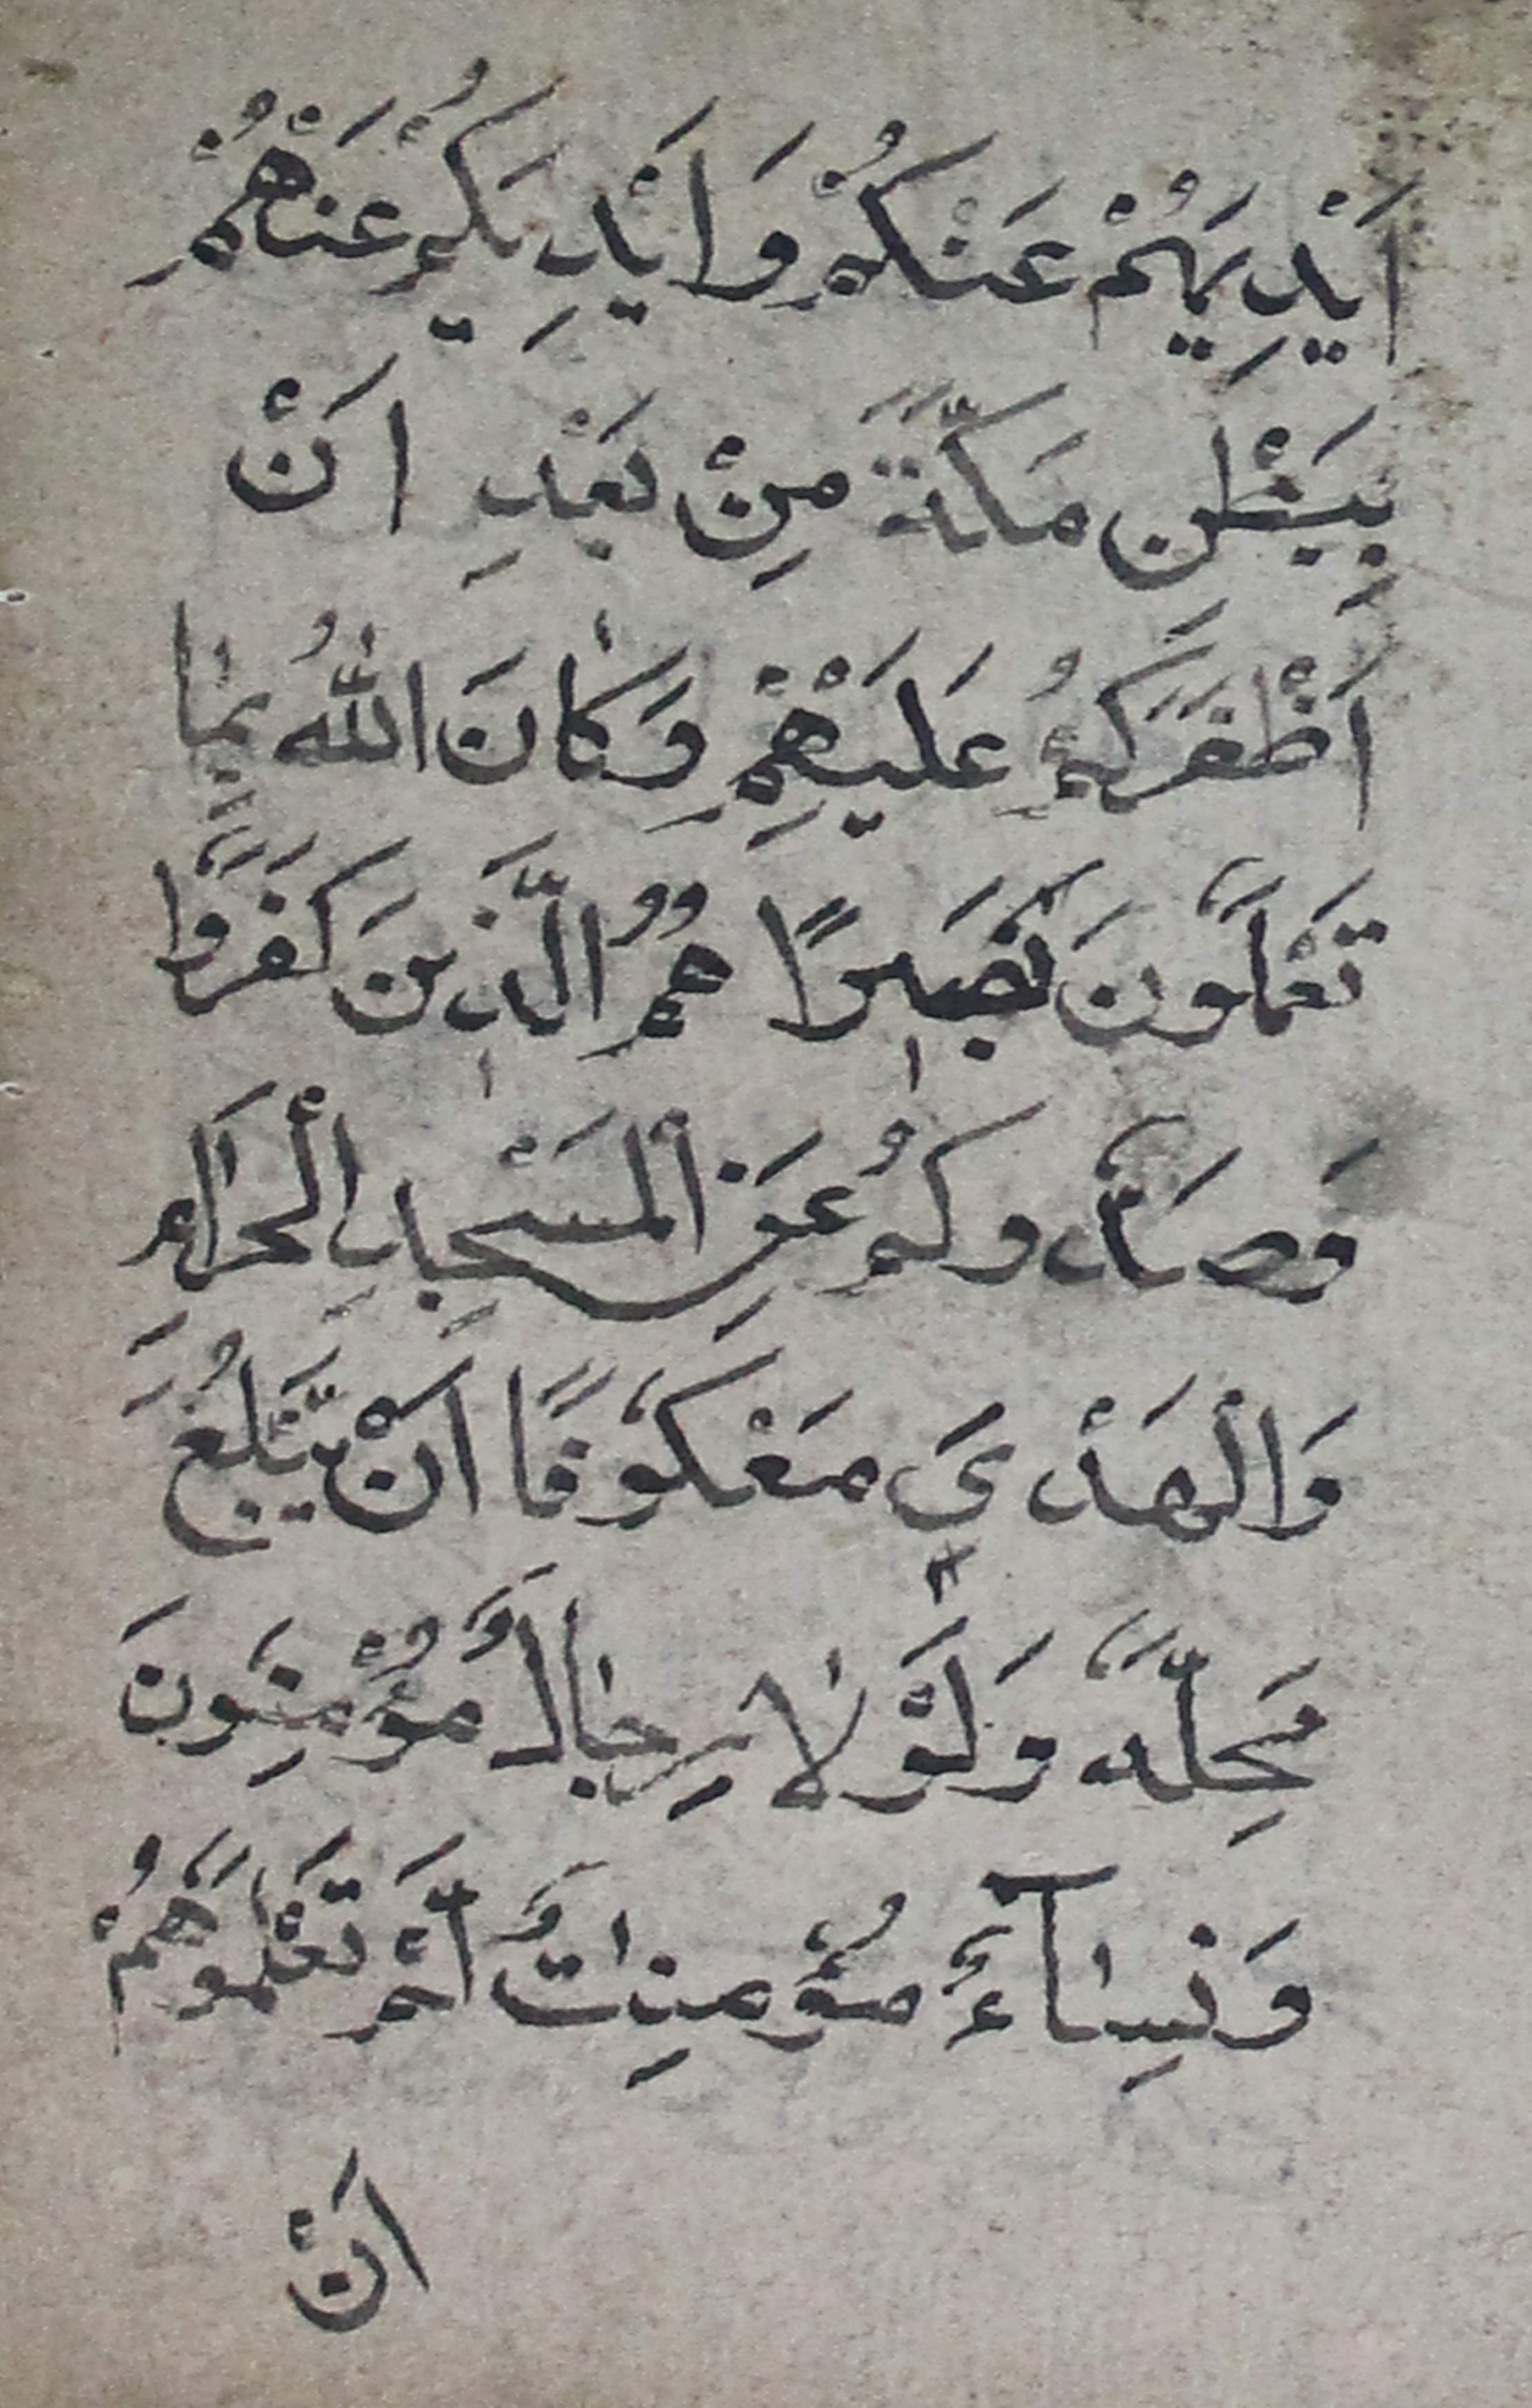 اَيْدِيَهُمْ عَنْكُمْ وَاَيْدِيَكُمْ عَنْهُمْ
بِبَطْنِ مَكَّةَ مِنْ بَعْدِ اَنْ
اَظْفَرَكُمْ عَلَيْهِمْ وَكَانَ اللّٰهُ بِمَا
تَعْمَلُونَ بَصِيرًا هُمُ الَّذِينَ كَفَرُوا
وَصَدُّوكُمْ عَنِ الْمَسْجِدِ الْحَرَامِ
وَالْهَدْيَ مَعْكُوفًا اَنْ يَّبْلُغَ
مَحِلَّهُ وَلَوْلَا رِجَالٌ مُؤْمِنُونَ
وَنِسَآءٌ مُؤْمِنٰتٌ لَمْ تَعْلَمُوهُمْ
اَنْ